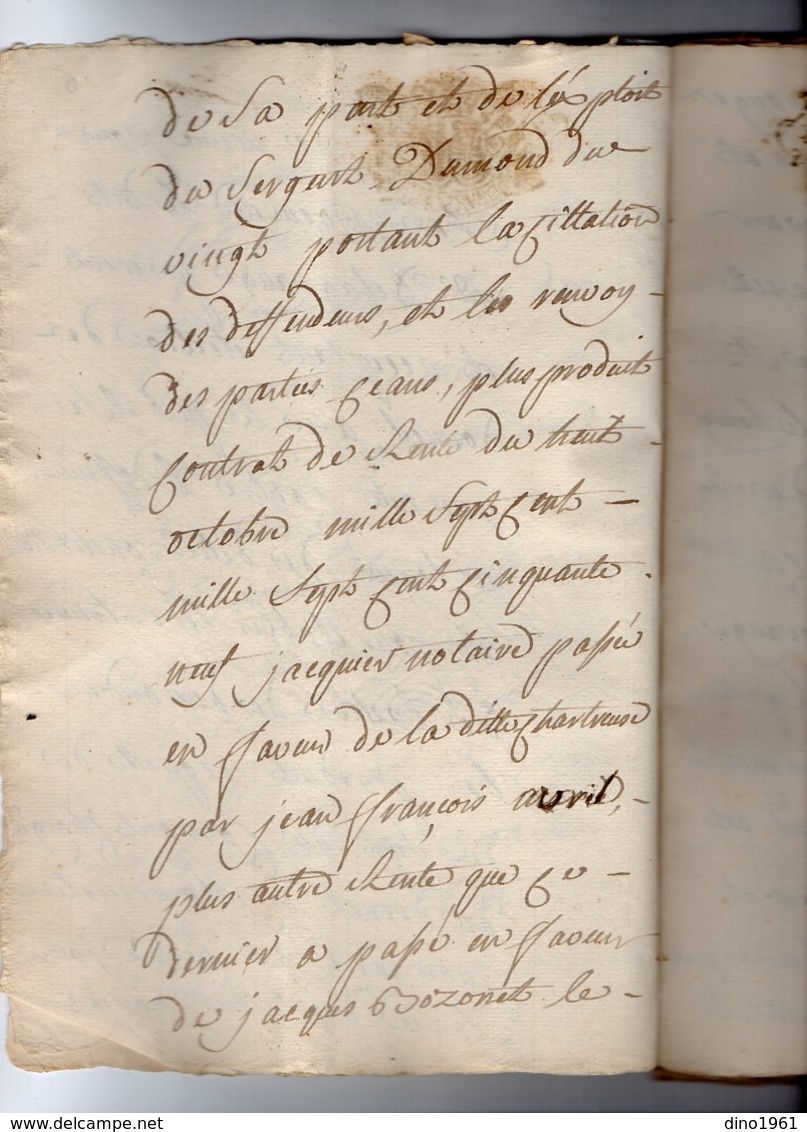 de sa part et de l'éxploit
du Sergent Dumond du
vingt portant la Cittation
des deffendeurs, et les renvoy -
des parties Ceans, plus produit
Contrat de Rente du huit -
octobre mille Sept Cent -
mille Sept Cent Cinquante .
neuf jacquier notaire passée
en faveur de la ditte Chartreuse
par jean françois avril, -
plus autre Rente que Ce -
dernier a passé en faveur
de jacques Bozonet le -
dino1961